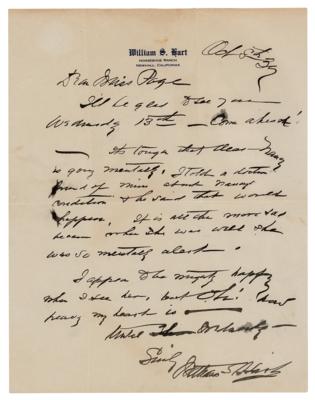 William S. Hart
HORSESHOE RANCH
NEWHALL, CALIFORNIA
Oct 9th
Dear Miss Page
I'll be glad to see you
Wednesday 13th — Come ahead!
— Its tough that dear Nancy
is going mentally. I told a doctor
friend of mine about Nancys
condition & he said that would
happen. It is all the more sad
because when she was well she
was so mentally alert.
I appear to be mighty happy
when I see her, but Oh! how
heavy my heart is —
Until Wednesday —
Sincerely
William S. Hart